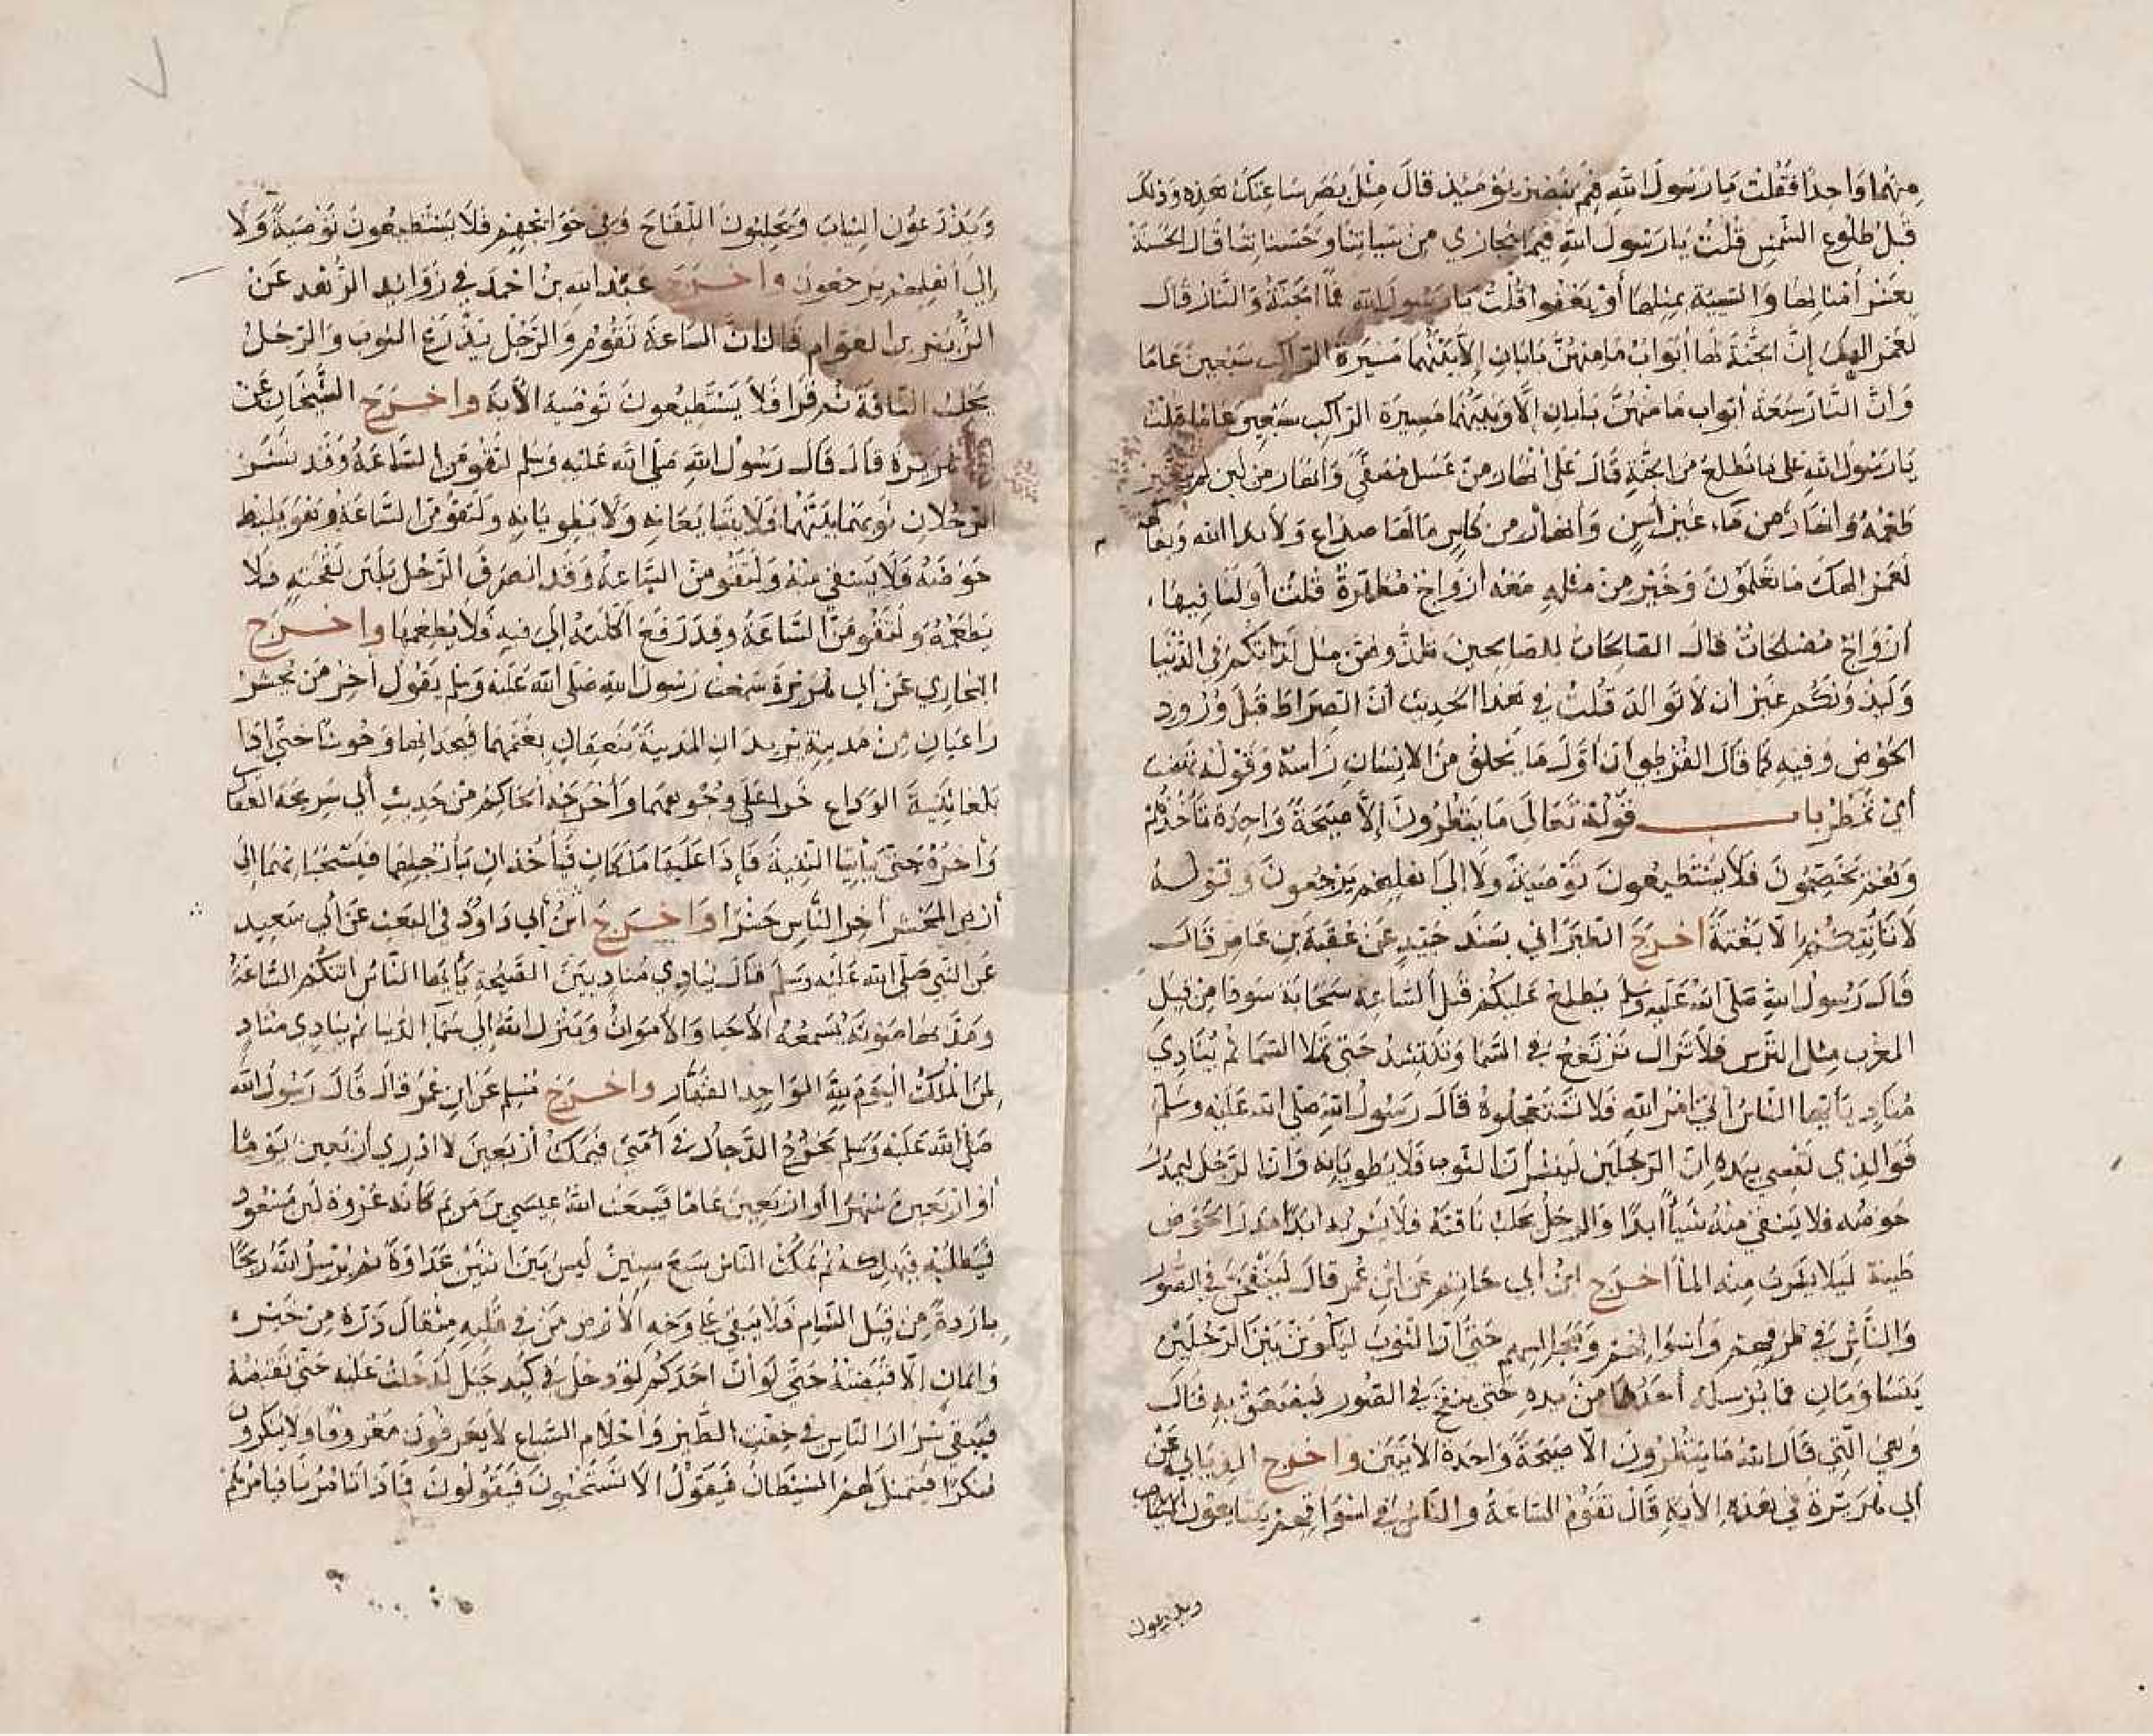 منهما واحدا فقلت يا رسول الله فبم نبصر يومئذ قال مثل بصر ساعتك هذه وذلك
قبل طلوع الشمس قلت يا رسول الله فبما نجازي من سياتنا وحسناتنا قال الحسنة
بعشر أمثالها والسيية بمثلها أو يغفوا قلت يا رسول الله فما الجنة والنار قال
لعمر الهك إن الجنة لها أبواب ما منهن بابان إلا بينهما مسيرة الراكب سبعين عاما
وان النار سبعة أبواب ما منهن بابان إلا وبينهما مسيرة الراكب سبعين عاما قلت
يا رسول الله على ما نطلع من الجنة قال على أنهار من عسل مصفى وانهار من لبن لم يتغير
طعمه وانهار من ماء غير أسن وانهار من كاس ما لها صداع ولا ندا الله وبفاكهة
لعمر الهك ما تعلمون وخير من مثله معه أزواج مطهرة قلت أولنا فيها
أزواج مصلحات قال الصالحات للصالحين تلذونهن مثل لذاتكم في الدنيا
ويلذونكم غير أن لا توالد قلت في هذا الحديث أن الصراط قبل ورود
الحوض وفيه كما قال القرطبي ان أول ما يخلق من الانسان رأسه وقوله تهضب
أي تمطر باب قوله تعالى ما ينظرون إلا صيحة واحدة تأخذهم
وهم يخصمون فلا يستطيعون توصية ولا إلى اهلهم يرجعون وقوله
لا تأتيكم إلا بغتة اخرج الطبراني بسند جيد عن عقبة بن عامر قال
قال رسول الله صلى الله عليه وسلم يطلع عليكم قبل الساعة سحابة سودا من قبل
المغرب مثل الترس فلا تزال ترتفع في السما وتنتشر حتى تملا السما ثم ينادي
مناد يا أيها الناس اتى امر الله فلا تستعجلوه قال رسول الله صلى الله عليه وسلم
فوالذي نفسي بيده ان الرجلين لينشران الثوب فلا يطويانه وان الرجل ليمدر
حوضه فلا يسقي منه شيأ أبدا والرجل يحلب ناقته فلا يشربه ابدا مدر الحوض
طينه ليلا يشرب منه الما اخرج ابن أبي حاتم عن ابن عمر قال لينفخن في الصور
والناس في طرقهم وأسواقهم ومجالسهم حتى ان الثوب ليكون بين الرجلين
يتساومان فما يرسله أحدهما من يده حتى ينفخ في الصور فيصعق به قال
وهي التي قال الله ما ينظرون الا صيحة واحدة الأيتين واخرج الفريابي عن
أبي هريرة في هذه الأية قال تقوم الساعة والناس في اسواقهم يتبايعون الثياب
ويذرعون
ويذرعون الثياب ويحلبون اللقاح وفي حوائجهم فلا يستطيعون توصية ولا
إلى أهلهم يرجعون واخرج عبد الله بن احمد في زوائد الزهد عن
الزبير بن العوام قال ان الساعة تقوم والرجل يذرع الثوب والرجل
يحلب الناقة ثم قرا فلا يستطيعون توصية الأية واخرج الشيخان عن
أبي هريرة قال قال رسول الله صلى الله عليه وسلم لتقومن الساعة وقد نشر
الرجلان ثوبهما بينهما فلا يتبايعانه ولا يطويانه ولتقومن الساعة وهو يليط
حوضه فلا يسقي منه ولتقومن الساعة وقد انصرف الرجل بلبن لقحته فلا
يطعمه ولتقومن الساعة وقد رفع اكلته إلى فيه فلا يطعمها واخرج
البخاري عن أبي هريرة سمعت رسول الله صلى الله عليه وسلم يقول أخر من يحشر
راعيان من مدينة يريدان المدينة ينعقان بغنمهما فيجدانها وحوشا حتى اذا
بلغا ثنية الوداع خرا على وجوههما وأخرجه الحاكم من حديث أبي سريحة الغفا
وأخره حتى يأتيا الثنية فإذا عليها ملكان فيأخذان بأرجلهما فيسحبانهما إلى
أرض المحشر أخر الناس حشرا واخرج ابن أبي داود في البعث عن أبي سعيد
عن النبي صلى الله عليه وسلم قال ينادي مناد بين الصيحة يأيها الناس اتتكم الساعة
ومد بها صوته يسمعه الأحيا والأموات وينزل الله إلى سما الدنيا ثم ينادي مناد
لمن الملك اليوم لله الواحد القهار واخرج مسلم عن ابن عمر قال قال رسول الله
صلى الله عليه وسلم يخرج الدجال في أمتي فيمكث أربعين لا ادري أربعين يوما
أو أربعين شهرا أو اربعين عاما فيبعث الله عيسى بن مريم كانه عروة بن مسعود
فيطلبه فيهلكه ثم يمكث الناس سبع سنين ليس بين اثنين عداوة ثم يرسل الله ريحا
باردة من قبل الشام فلا يبقى على وجه الأرض من في قلبه مثقال ذرة من خير
وإيمان إلا قبضته حتى لو أن احدكم لو دخل في كبد جبل لدخلت عليه حتى تقبضه
فيبقى شرار الناس في خفة الطير وأحلام السباع لا يعرفون معروفا ولا ينكرون
منكرا فيتمثل لهم الشيطان فيقول الا تستحيون فيقولون فماذا تأمرنا فيامرهم